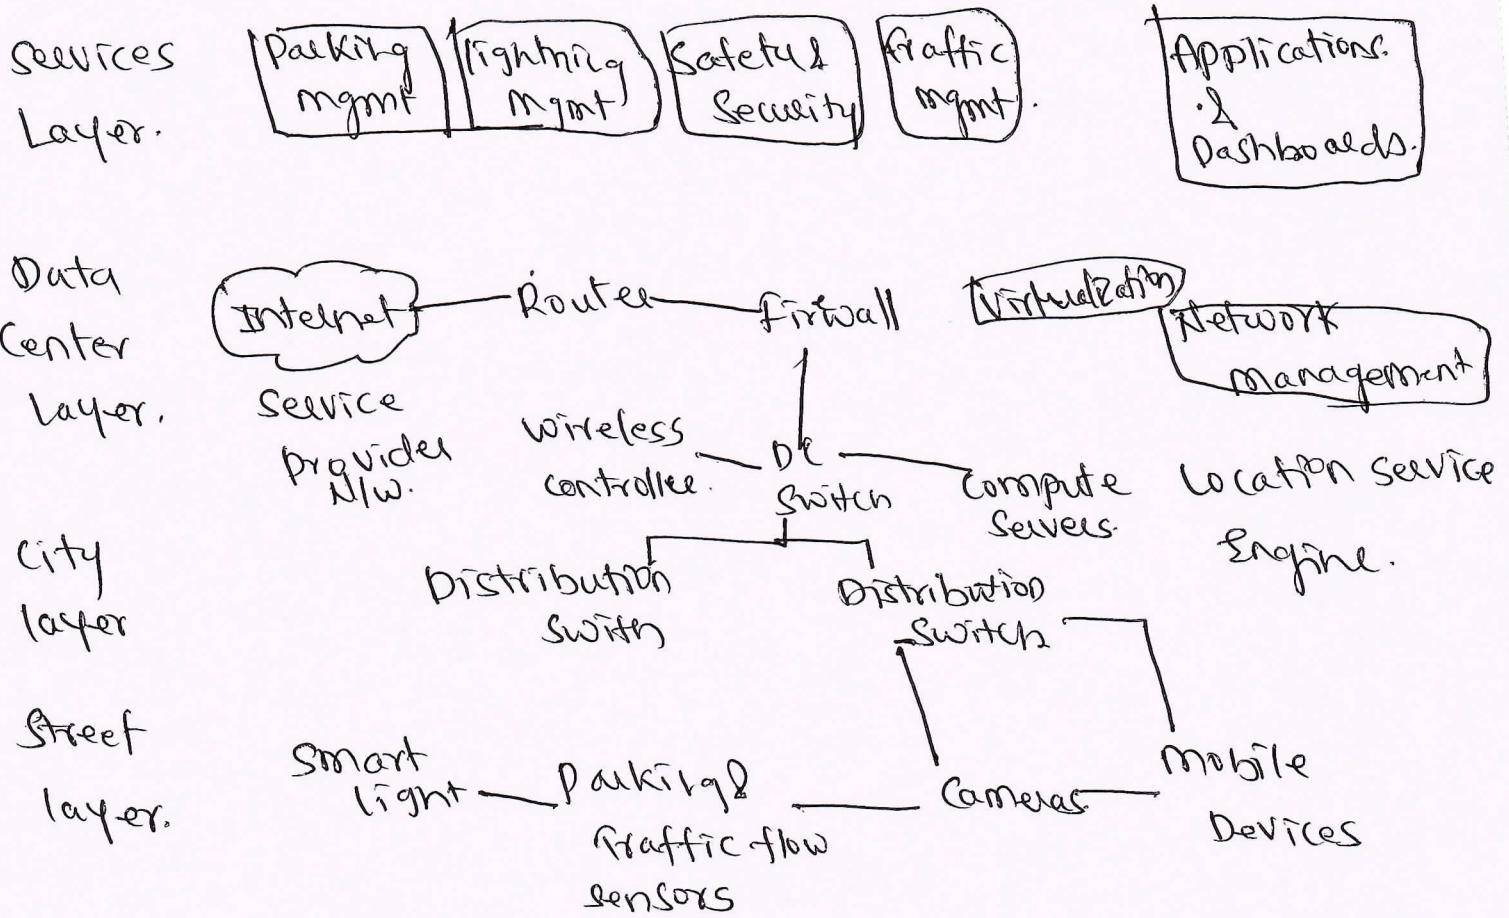 Services
Layer.
Parking
mgmt
lightning
mgmt
Safety &
Security
Traffic
mgmt.
Applications.
&
Dashboards.
Data
Center
Layer.
Internet
Router
firwall
Virtualization
Network
management
Service
provider
N/W.
wireless
controller.
DC
Switch
Compute
Servers.
Location Service
Engine.
City
layer
Distribution
Swith
Distribution
Switch
Street
layer.
Smart
light
Parking &
Traffic flow
sensors
Cameras
Mobile
Devices